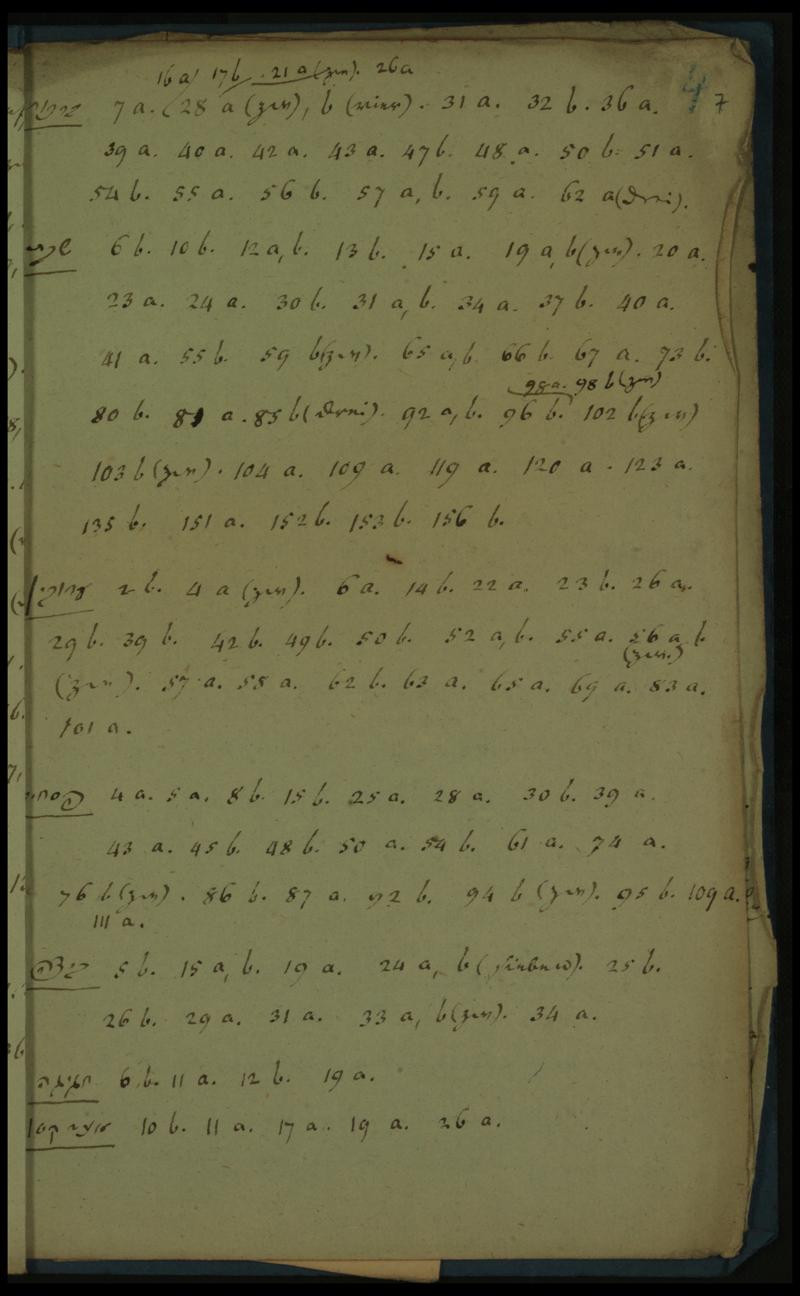 16 a, 17 b. 21 a (zen). 26 a
7 a. 28 a (zen), b (vier). 31 a. 32 b. 36 a. 7
39 a. 40 a. 42 a. 43 a. 47 b. 48 a. 50 b. 51 a.
54 b. 55 a. 56 b. 57 a, b. 59 a. 62 a (Drei).
6 b. 10 b. 12 a, b. 13 b. 15 a. 19 a, b (zen). 20 a.
23 a. 24 a. 30 b. 31 a, b. 34 a. 37 b. 40 a.
41 a. 55 b. 59 b (zen). 65 a, b. 66 b. 67 a. 73 b.
98 a. 98 b (zen)
80 b. 81 a. 85 b (Drei). 92 a, b. 96 b. 102 b (zen)
103 b (zen). 104 a. 109 a. 119 a. 120 a. 123 a.
135 b. 151 a. 152 b. 153 b. 156 b.
עירובין 2 b. 4 a (zen). 6 a. 14 b. 22 a. 23 b. 26 a.
29 b. 39 b. 42 b. 49 b. 50 b. 52 a, b. 55 a. 56 a, b
(zen)
(zen). 57 a. 58 a. 62 b. 63 a. 65 a. 69 a. 83 a.
101 a.
פסחי 4 a. 5 a. 8 b. 15 b. 25 a. 28 a. 30 b. 39 a.
43 a. 45 b. 48 b. 50 a. 54 b. 61 a. 74 a.
76 b (zen). 86 b. 87 a. 92 b. 94 b (zen). 95 b. 109 a.
111 a.
5 b. 15 a, b. 19 a. 24 a, b. 25 b.
26 b. 29 a. 31 a. 33 a, b (zen). 34 a.
חגיגה 6 b. 11 a. 12 b. 19 a.
מועד קטן 10 b. 11 a. 17 a. 19 a. 26 a.